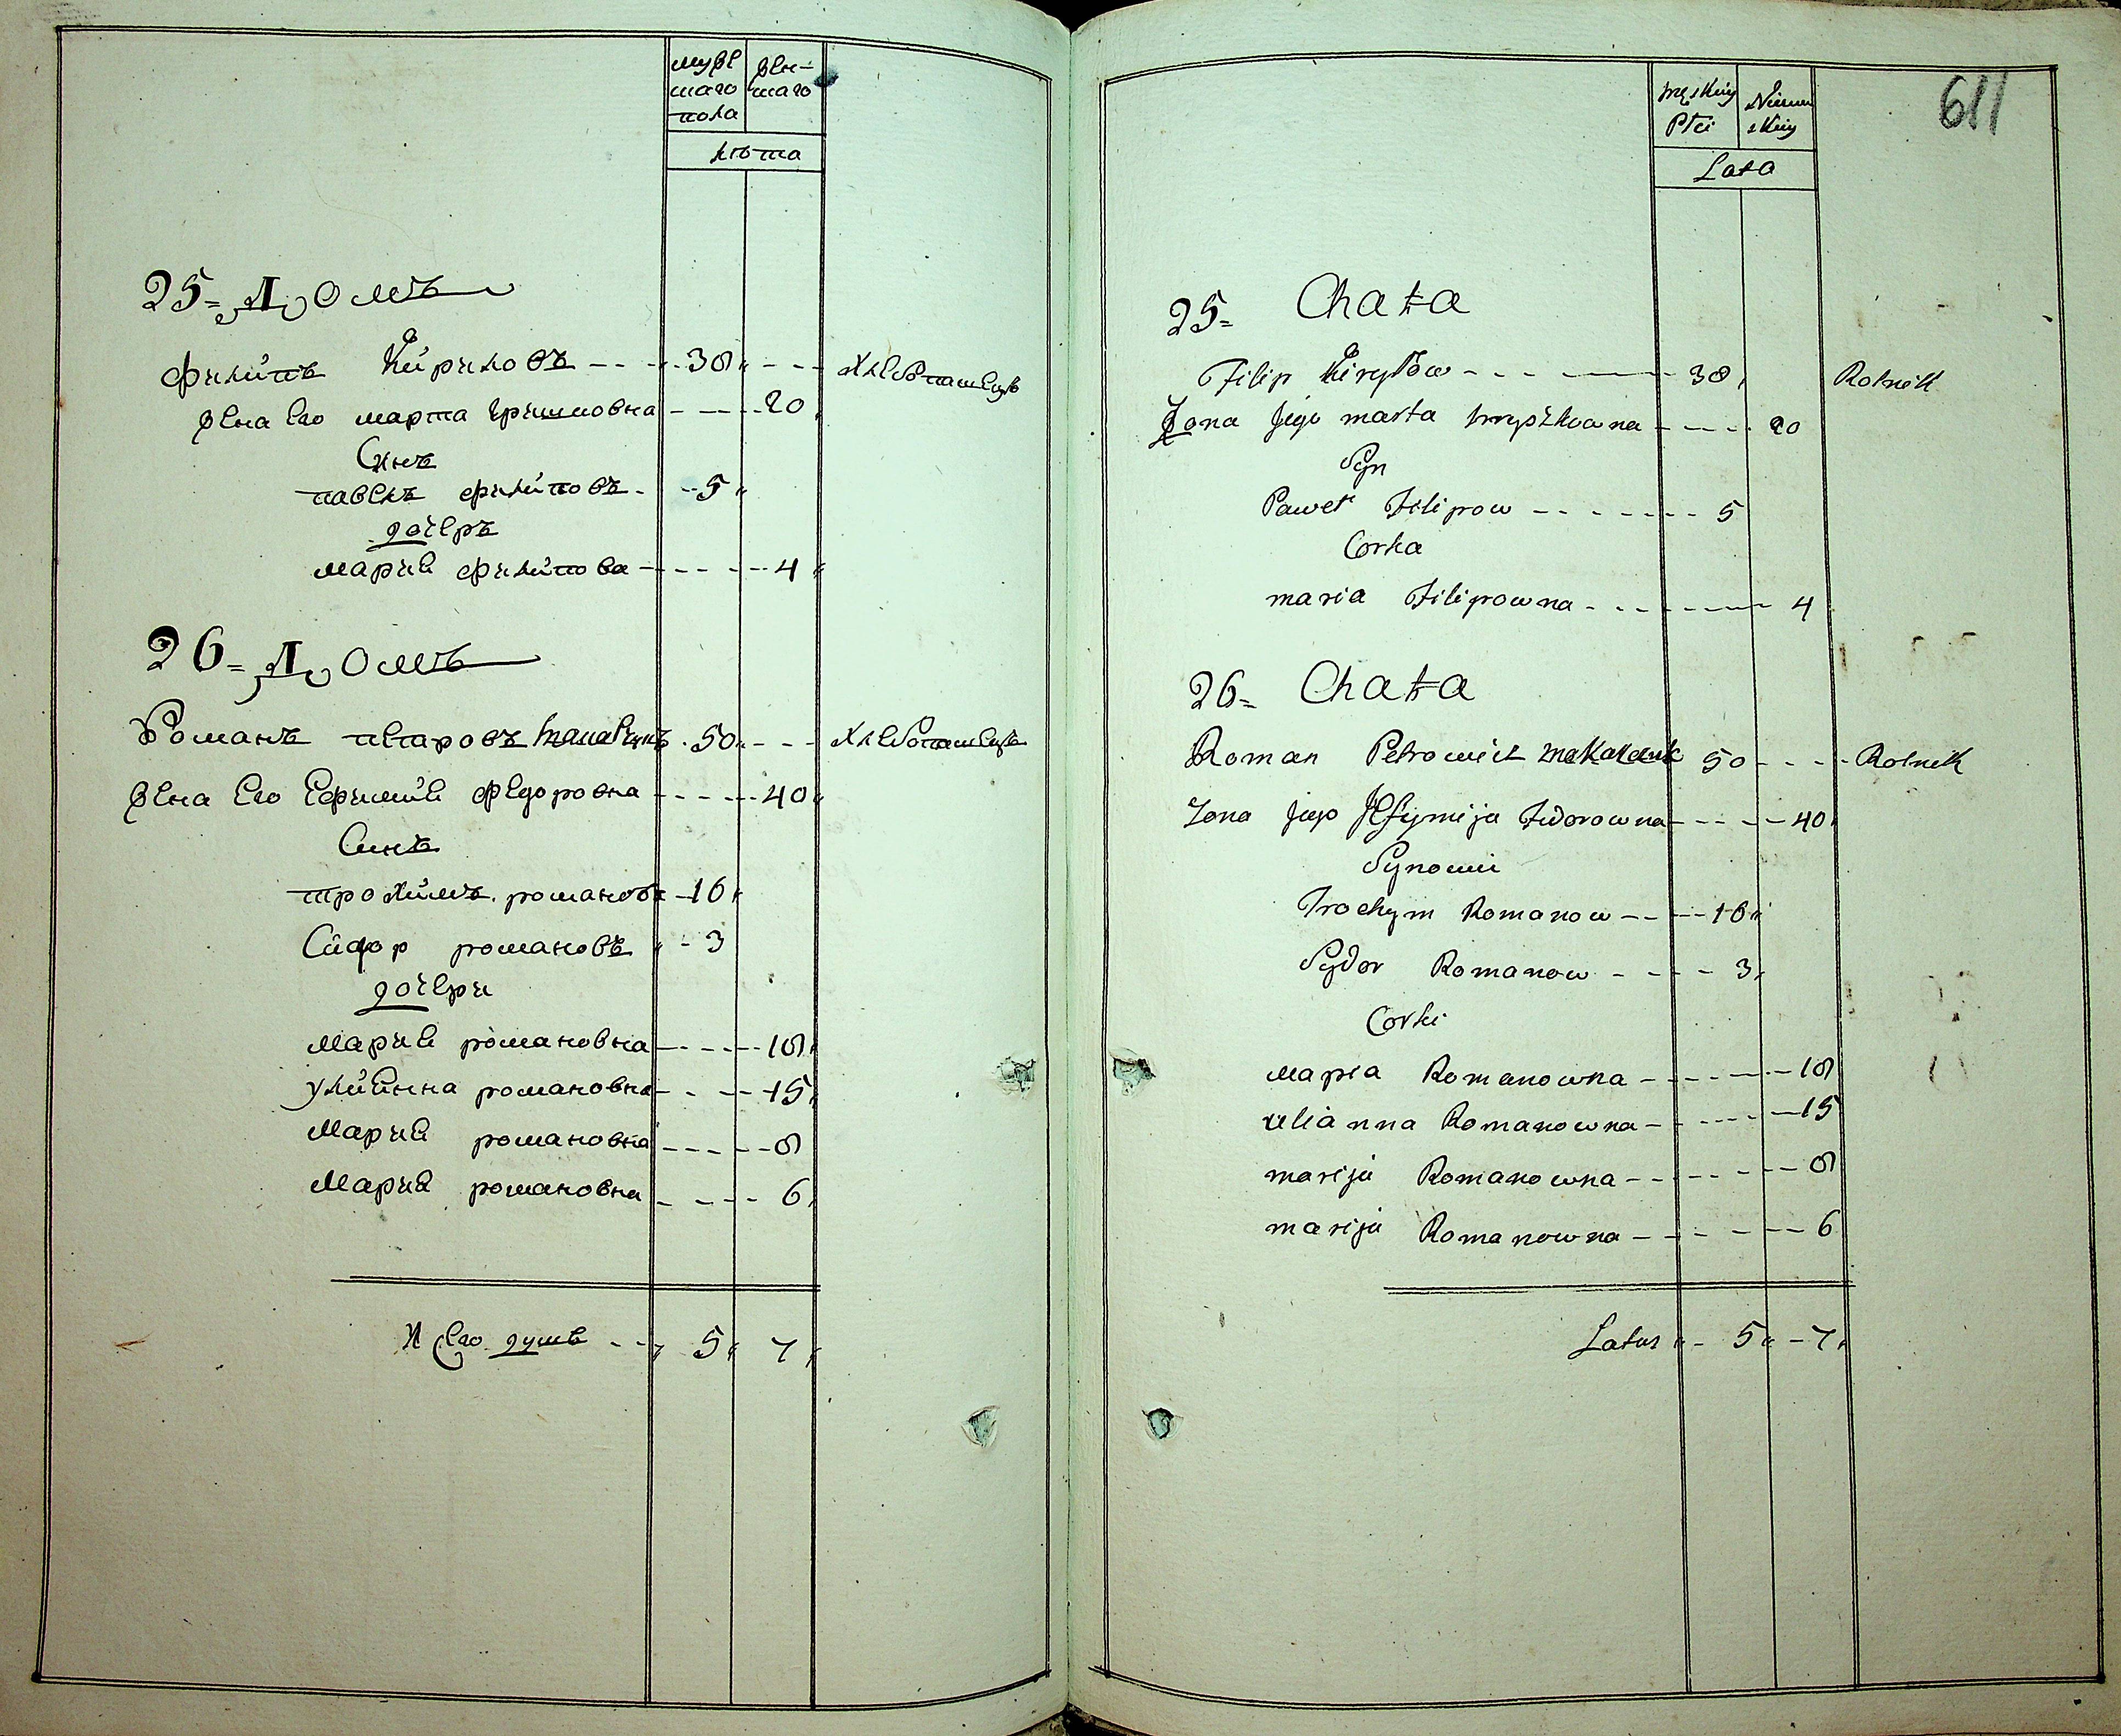 муже женскаго
скаго
пола
лѣта
25 = Домъ
Филипъ Кириловъ 38 Хлѣбопашецъ
Жена Его марта Гришковна 20
Сынъ
павелъ филиповъ 5
дочеръ
мария филипова 4
26 = Домъ
Романъ петровъ 50 Хлѣбопашецъ
Жена Его Ефимия Федоровна 40
Синъ
трохимъ романовъ 16
Сидор романовъ 3
дочери
Мария романовна 18
улиянна романовна 15
Мария романовна 8
Мария романовна 6
душъ 5 7
611
męskiey
Ptci
Lata
25 = Chata
Filip Kiryłow 38 Rolnik
Zona Jego marta hryszkowna 20
Syn
Paweł Filipow 5
Corka
maria Filipowna 4
26 = Chata
Roman Petrowicz 50 Rolnik
Zona Jego Jefymija Fidorowna 40
Synowie
Trochym Romanow 16
Sydor Romanow 3
Corki
мариa Romanowna 18
ulianna Romanowna 15
marija Romanowna 8
marija Romanowna 6
Latus 5 7